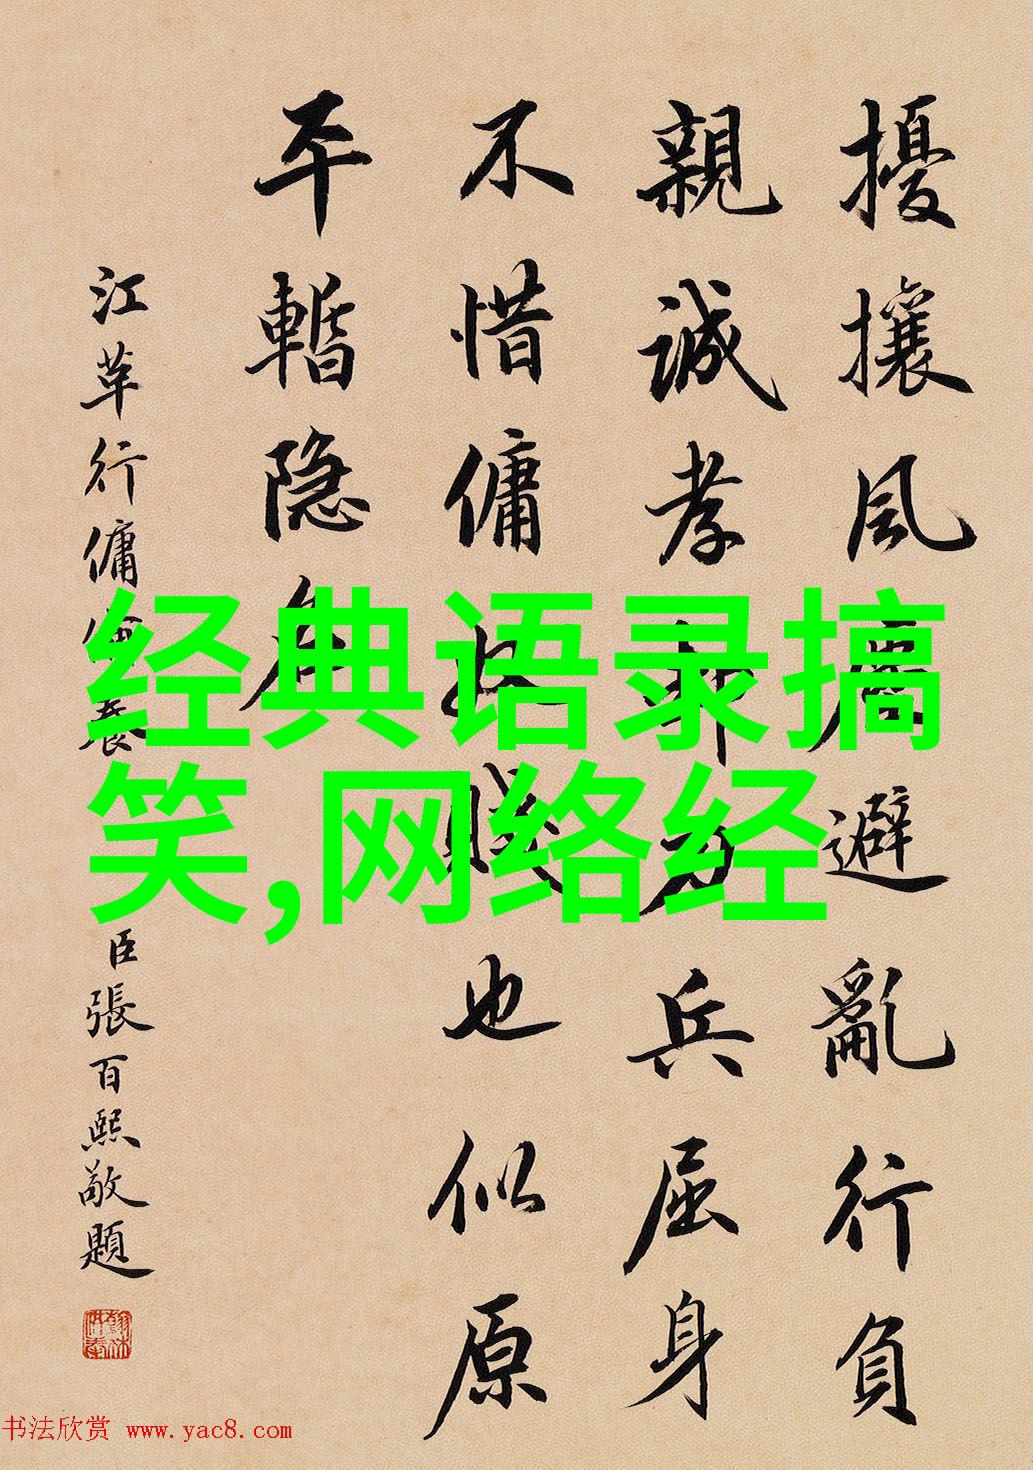 擾攘風塵避亂行負
親誠孝却兵屈身
不惜傭賤也似原
平暫隐
江革行傭養
臣張百熙敬題
经典语录搞
笑,网络经
书法欣赏 www.yac8.com